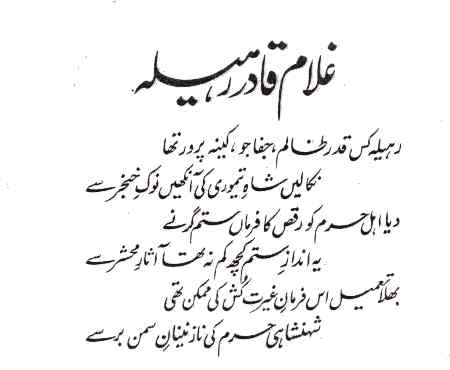 غلام قادر رہیلہ
رہیلہ کس قدر ظالم، جفا جو، کینہ پرور تھا
نکالیں شاہِ تیموری کی آنکھیں نوکِ خنجر سے
دیا اہلِ حرم کو رقص کا فرماں ستم گر نے
یہ اندازِ ستم کچھ کم نہ تھا آثارِ محشر سے
بھلا تعمیل اس فرمانِ غیرت کش کی ممکن تھی
شہنشاہی حرم کی نازنینانِ سمن بر سے